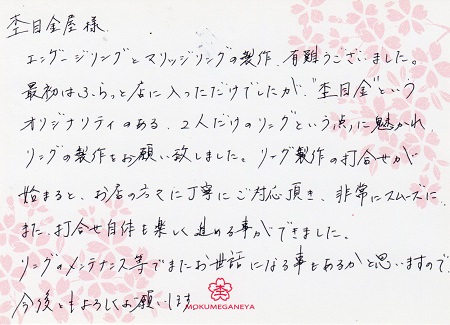 杢目金屋様
エンゲージリングとマリッジリングの製作、有難うございました。
最初はふらっと店に入っただけでしたが、"杢目金"という
オリジナリティのある、2人だけのリングという点に魅かれ
リングの製作をお願い致しました。リング製作の打合せが
始まると、お店の方々に丁寧にご対応頂き、非常にスムーズに、
また、打合せ自体も楽しく進める事ができました。
リングのメンテナンス等でまたお世話になる事もあるかと思いますので
今後ともよろしくお願いします
MOKUMEGANEYA